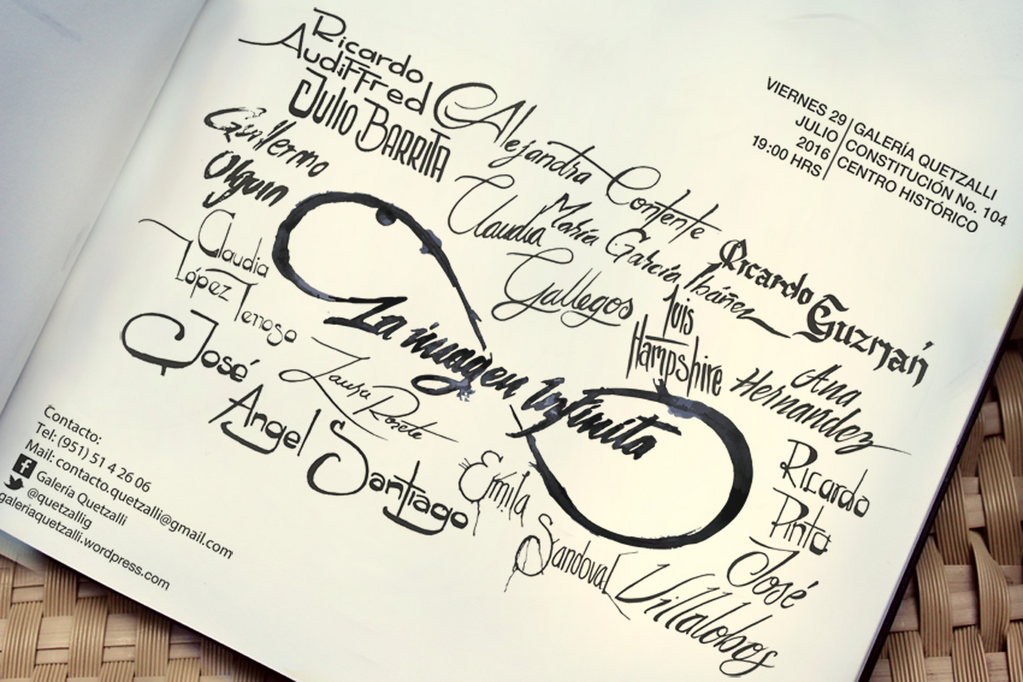 Ricardo
Audiffred
Julio Barrita
Alejandra Contente
Guillermo
Olguin
Claudia
María García Ibáñez
Gallegos
Ricardo
Guzmán
Claudia
López Terroso
Luis
Hampshire
Ana
Hernandez
La imagen infinita
José
Angel Santiago
Laura Rosete
Emilia
Sandoval
Ricardo
Pinto
José
Villalobos
VIERNES 29
JULIO
2016
19:00 HRS
GALERÍA QUETZALLI
CONSTITUCIÓN No. 104
CENTRO HISTÓRICO
Contacto:
Tel: (951) 51 4 26 06
Mail: contacto.quetzalli@gmail.com
Galería Quetzalli
@quetzallig
galeriaquetzalli.wordpress.com